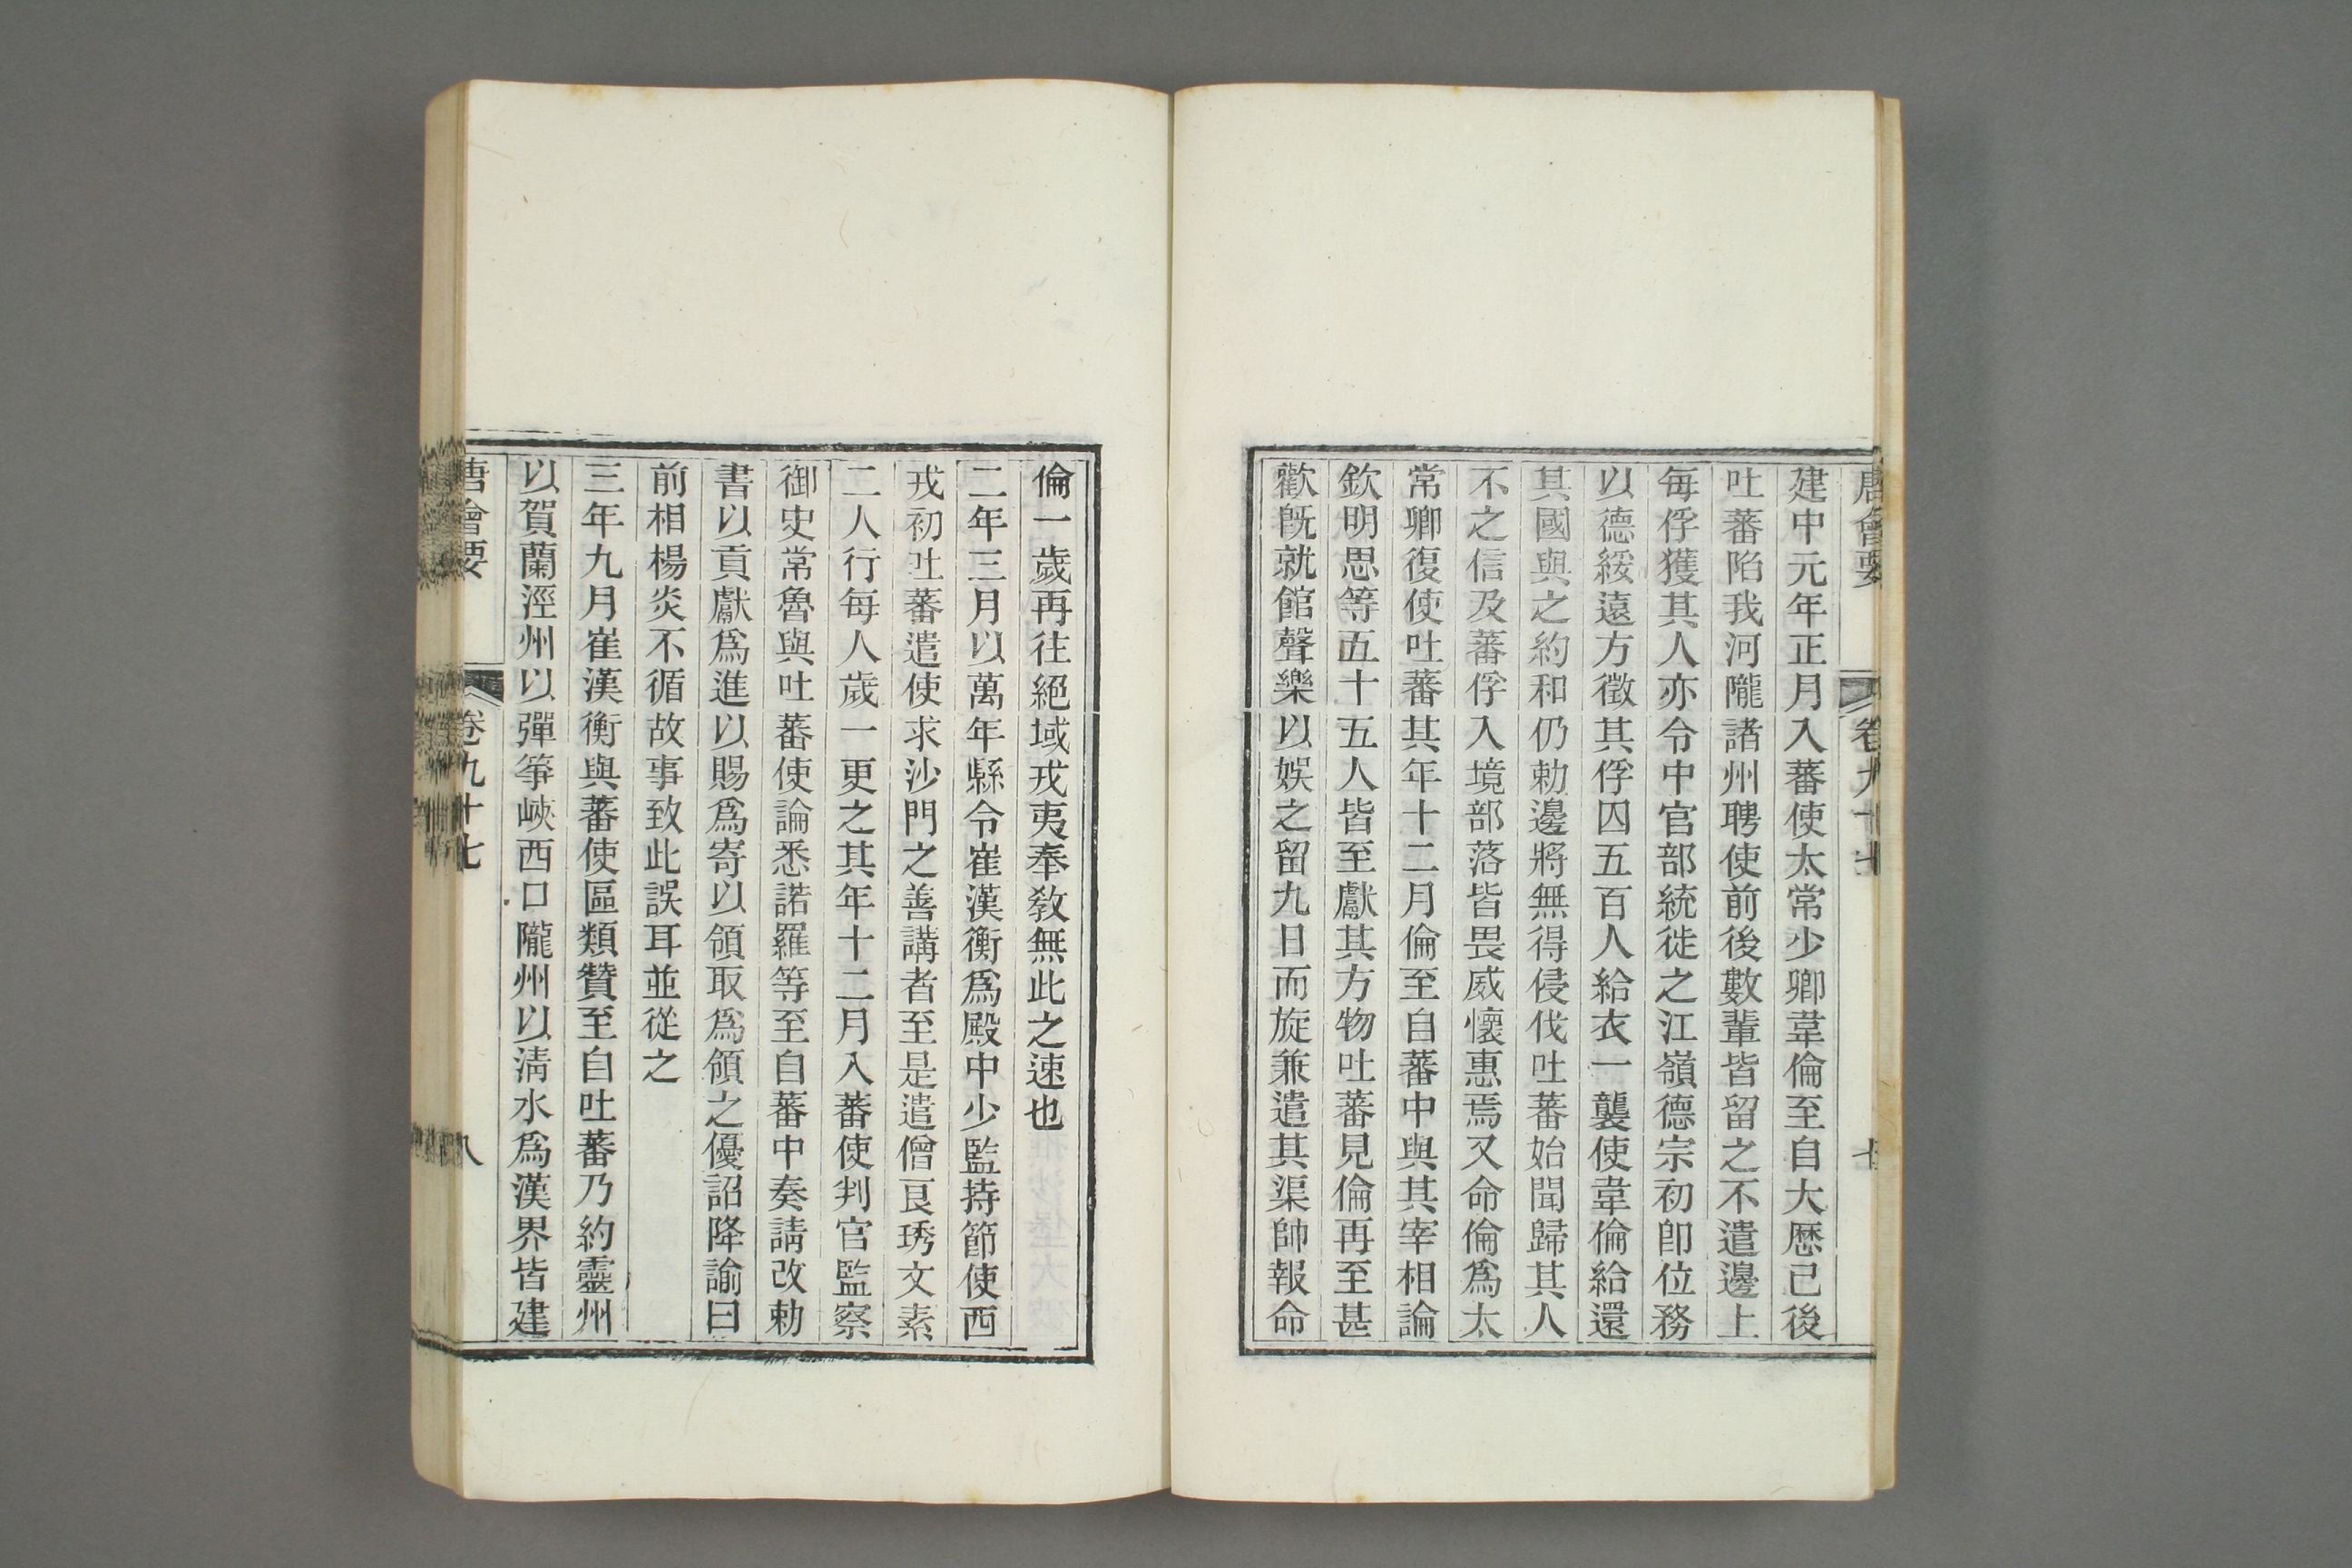 唐會要 卷九十七 七
建中元年正月入蕃使太常少卿韋倫至自大厯己後
吐蕃陷我河隴諸州聘使前後數輩皆留之不遣邊上
每俘獲其人亦令中官部統徙之江嶺德宗初卽位務
以德綏遠方徵其俘囚五百人給衣一襲使韋倫給還
其國與之約和仍勅邊將無得侵伐吐蕃始聞歸其人
不之信及蕃俘入境部落皆畏威懷惠焉又命倫爲太
常卿復使吐蕃其年十二月倫至自蕃中與其宰相論
欽明思等五十五人皆至獻其方物吐蕃見倫再至甚
歡旣就館聲樂以娛之留九日而旋兼遣其渠帥報命
倫一歲再往絕域戎夷奉敎無此之速也
二年三月以萬年縣令崔漢衡爲殿中少監持節使西
戎初吐蕃遣使求沙門之善講者至是遣僧良琇文素
二人行每人歲一更之其年十二月入蕃使判官監察
御史常魯與吐蕃使論悉諾羅等至自蕃中奏請改勅
書以貢獻爲進以賜爲寄以領取爲領之優詔降諭曰
前相楊炎不循故事致此誤耳並從之
三年九月崔漢衡與蕃使區類贊至自吐蕃乃約靈州
以賀蘭涇州以彈箏峽西口隴州以淸水爲漢界皆建
唐會要 卷九十七 八